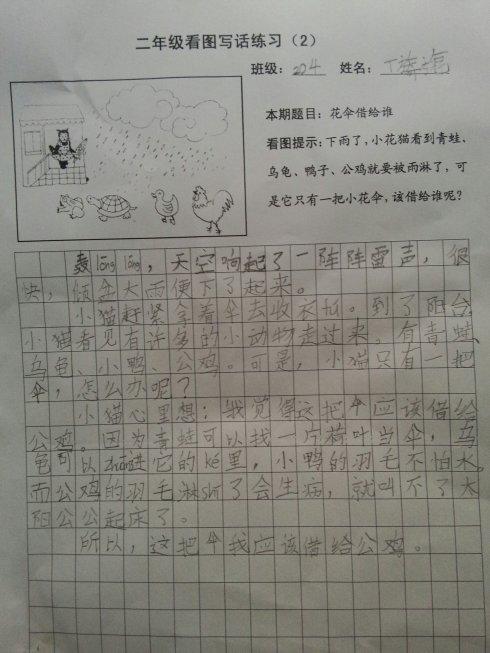 二年级看图写话练习（2）
班级：204 姓名：丁
本期题目：花伞借给谁
看图提示：下雨了，小花猫看到青蛙、
乌龟、鸭子、公鸡就要被雨淋了，可
是它只有一把小花伞，该借给谁呢？
轰lōng lōng，天空响起了一阵阵雷声，很
快，倾盆大雨便下了起来。
小猫赶紧拿着伞去收衣。到了阳台，
小猫看见有许多的小动物走过来。有青蛙、
乌龟、小鸭、公鸡。可是，小猫只有一把
伞，怎么办呢？
小猫心里想：我觉得这把伞应该借给
公鸡。因为青蛙可以找一片荷叶当伞，乌
龟可以进它的ké里，小鸭的羽毛不怕水，
而公鸡的羽毛淋shī了会生病，就叫不了太
阳公公起床了。
所以，这把伞我应该借给公鸡。